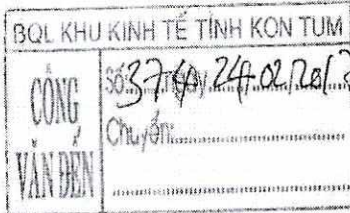 BQL KHU KINH TẾ TỈNH KON TUM
CÔNG VĂN ĐẾN
Số: 374
24/02/201
Chuyển: